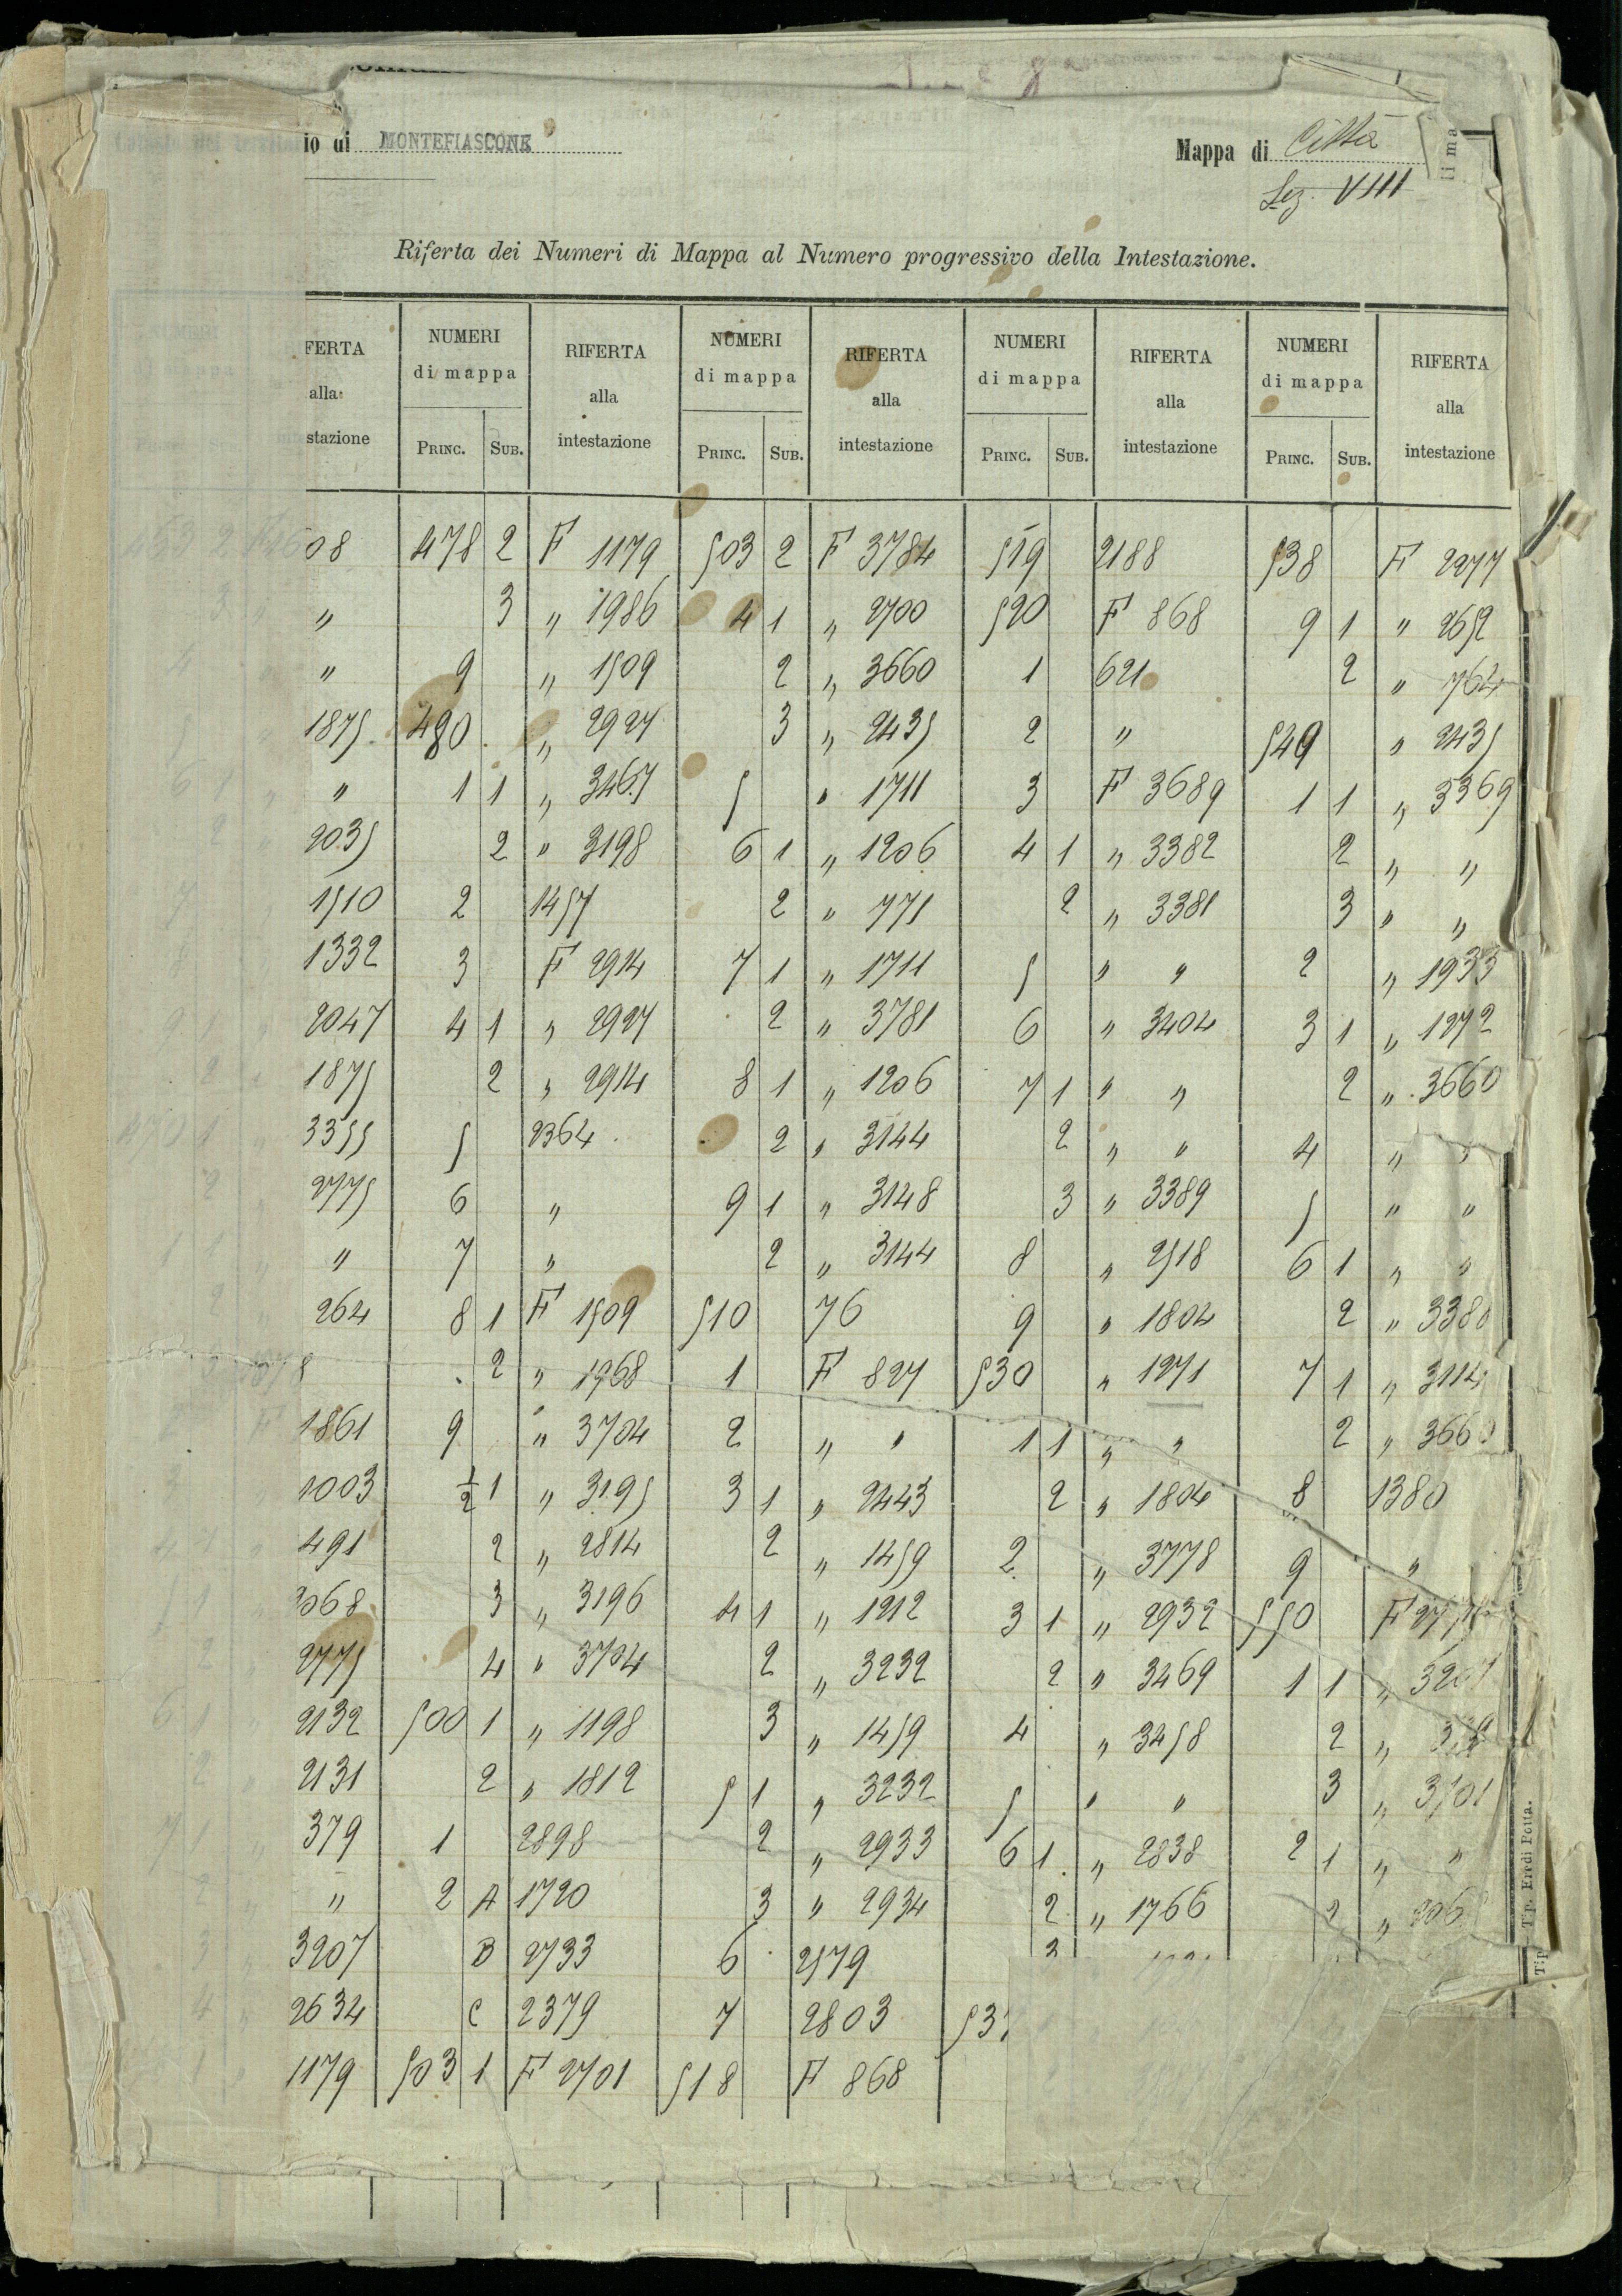 io di MONTEFIASCONE Mappa di Città
Sez. VIII
Riferta dei Numeri di Mappa al Numero progressivo della Intestazione.
FERTA NUMERI RIFERTA NUMERI RIFERTA NUMERI RIFERTA NUMERI RIFERTA
alla di mappa alla di mappa alla di mappa alla di mappa alla
stazione PRINC. SUB. intestazione PRINC. SUB. intestazione PRINC. SUB. intestazione PRINC. SUB. intestazione
08 478 2 F 1179 503 2 F 3784 519 2188 538 F 2277
" 3 " 1986 4 1 " 2700 520 F 868 9 1 " 2652
" 9 " 1509 2 " 3660 1 621 2 " 764
1875 480 " 2927 3 " 2435 2 " 549 " 2435
" 1 1 " 3467 5 " 1711 3 F 3689 1 1 " 3369
2035 2 " 3198 6 1 " 1206 4 1 " 3382 2 " "
1510 2 1457 2 " 771 2 " 3381 3 " "
1332 3 F 2914 7 1 " 1711 5 " " 2 " 1933
2047 4 1 " 2927 2 " 3781 6 " 3404 3 1 " 1272
1875 2 " 2914 8 1 " 1206 7 1 " " 2 " 3660
3355 5 2364 2 " 3144 2 " " 4 " "
2775 6 " 9 1 " 3148 3 " 3389 5 " "
" 7 " 2 " 3144 8 " 2518 6 1 " "
264 8 1 F 1509 510 76 9 " 1804 2 " 3380
8 2 " 1968 1 F 827 530 " 1271 7 1 " 3114
1861 9 " 3704 2 " " 1 1 " " 2 " 3660
1003 1/2 1 " 3195 3 1 " 2443 2 " 1804 8 1380
491 2 " 2814 2 " 1459 2 " 3778 9 "
3068 3 " 3196 4 1 " 1212 3 1 " 2932 550 F
2775 4 " 3704 2 " 3232 2 " 3469 1 1 "
2132 500 1 " 1198 3 " 1459 4 " 3458 2 "
2131 2 " 1812 5 1 " 3232 5 " " 3 " 3701
379 1 2898 2 " 2933 6 1 " 2838 2 1 " "
" 2 A 1720 3 " 2934 2 " 1766 2 "
3207 B 2733 6 2579 3
2634 C 2379 7 2803 53
1179 503 1 F 2701 518 F 868
Tip. Eredi Potta.